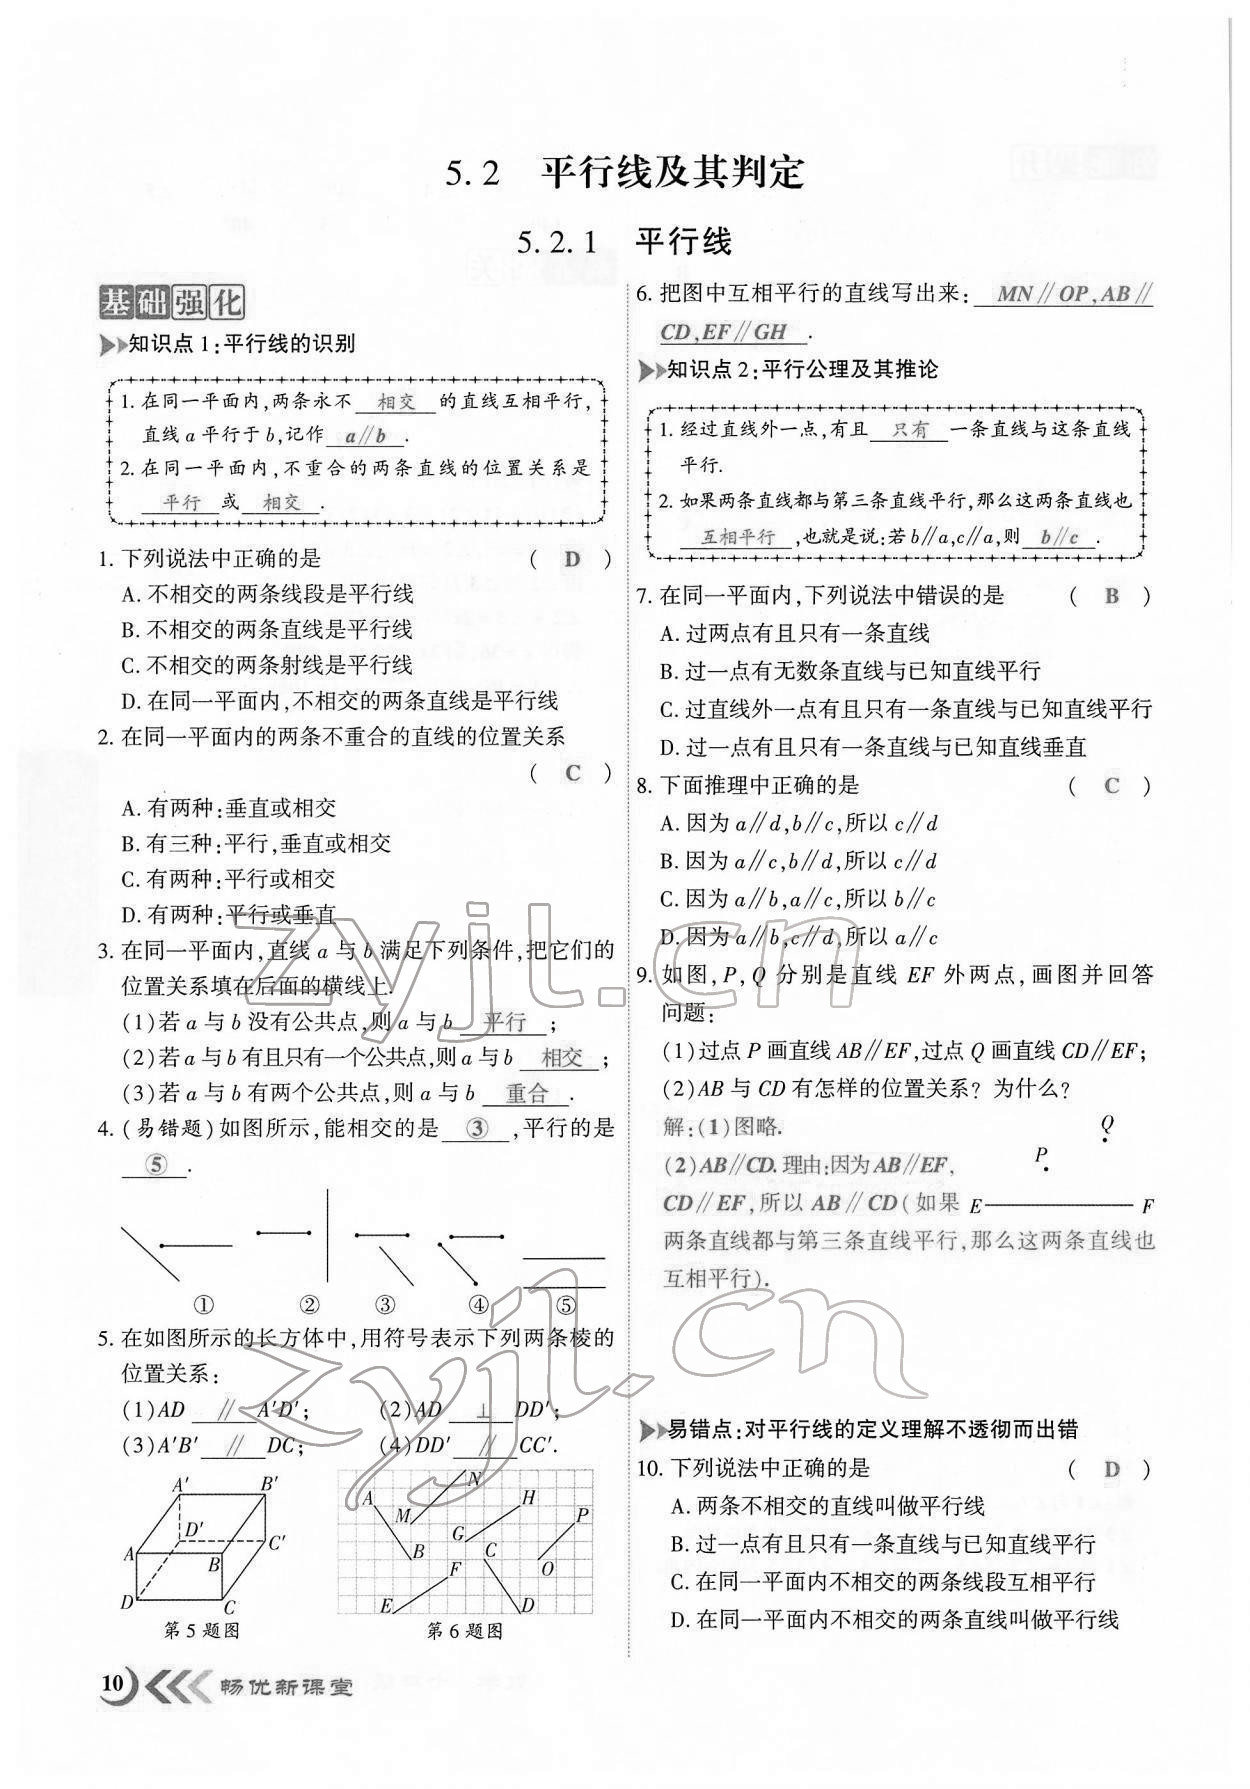 5.2 平行线及其判定
5.2.1 平行线
基础强化
知识点1:平行线的识别
1. 在同一平面内,两条永不 相交 的直线互相平行,
直线a平行于b,记作 a∥b .
2. 在同一平面内,不重合的两条直线的位置关系是
平行 或 相交 .
1. 下列说法中正确的是 ( D )
A. 不相交的两条线段是平行线
B. 不相交的两条直线是平行线
C. 不相交的两条射线是平行线
D. 在同一平面内,不相交的两条直线是平行线
2. 在同一平面内的两条不重合的直线的位置关系
( C )
A. 有两种:垂直或相交
B. 有三种:平行,垂直或相交
C. 有两种:平行或相交
D. 有两种:平行或垂直
3. 在同一平面内,直线a与b满足下列条件,把它们的
位置关系填在后面的横线上.
(1)若a与b没有公共点,则a与b 平行 ;
(2)若a与b有且只有一个公共点,则a与b 相交 ;
(3)若a与b有两个公共点,则a与b 重合 .
4. (易错题)如图所示,能相交的是 ③ ,平行的是
⑤ .
① ② ③ ④ ⑤
5. 在如图所示的长方体中,用符号表示下列两条棱的
位置关系:
(1)AD ∥ A′D′; (2)AD ⊥ DD′;
(3)A′B′ ∥ DC; (4)DD′ ∥ CC′.
A′ B′
D′ C′
A B
D C
第5题图
N
A M H
G P
B C
F O
E D
第6题图
10 畅优新课堂
6. 把图中互相平行的直线写出来: MN∥OP,AB∥
CD,EF∥GH .
知识点2:平行公理及其推论
1. 经过直线外一点,有且 只有 一条直线与这条直线
平行.
2. 如果两条直线都与第三条直线平行,那么这两条直线也
互相平行 ,也就是说:若b∥a,c∥a,则 b∥c .
7. 在同一平面内,下列说法中错误的是 ( B )
A. 过两点有且只有一条直线
B. 过一点有无数条直线与已知直线平行
C. 过直线外一点有且只有一条直线与已知直线平行
D. 过一点有且只有一条直线与已知直线垂直
8. 下面推理中正确的是 ( C )
A. 因为a∥d,b∥c,所以c∥d
B. 因为a∥c,b∥d,所以c∥d
C. 因为a∥b,a∥c,所以b∥c
D. 因为a∥b,c∥d,所以a∥c
9. 如图,P,Q分别是直线EF外两点,画图并回答
问题:
(1)过点P画直线AB∥EF,过点Q画直线CD∥EF;
(2)AB与CD有怎样的位置关系? 为什么?
解:(1)图略.
(2)AB∥CD.理由:因为AB∥EF,
CD∥EF,所以AB∥CD(如果
两条直线都与第三条直线平行,那么这两条直线也
互相平行).
Q
P
E F
易错点:对平行线的定义理解不透彻而出错
10. 下列说法中正确的是 ( D )
A. 两条不相交的直线叫做平行线
B. 过一点有且只有一条直线与已知直线平行
C. 在同一平面内不相交的两条线段互相平行
D. 在同一平面内不相交的两条直线叫做平行线
zyjl.cn
zyjl.cn